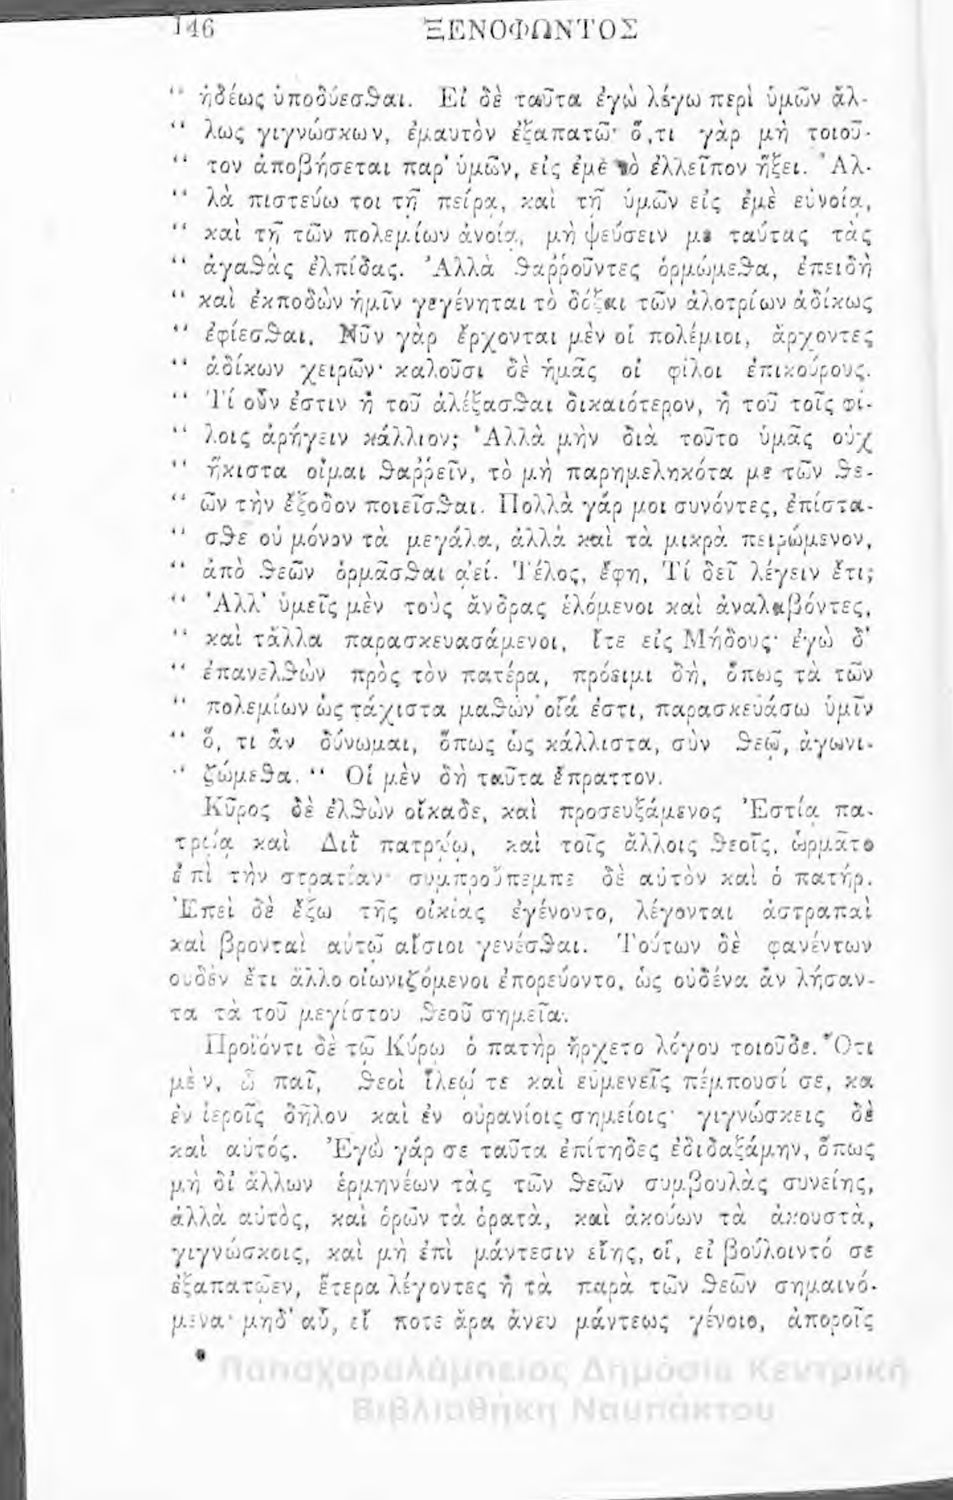 146 ΞΕΝΟΦΩΝΤΟΣ
“ ἡδέως ὑποδύεσθαι. Εἰ δὲ ταῦτα ἐγὼ λέγω περὶ ὑμῶν ἄλ-
“ λως γιγνώσκων, ἐμαυτὸν ἐξαπατῶ· ὅ,τι γὰρ μὴ τοιοῦ-
“ τον ἀποβήσεται παρ' ὑμῶν, εἰς ἐμὲ τὸ ἐλλεῖπον ἥξει. Ἀλ-
“ λὰ πιστεύω τοι τῇ πείρᾳ, καὶ τῇ ὑμῶν εἰς ἐμὲ εὐνοίᾳ,
“ καὶ τῇ τῶν πολεμίων ἀνοίᾳ, μὴ ψεύσειν με ταύτας τὰς
“ ἀγαθὰς ἐλπίδας. Ἀλλὰ θαῤῥοῦντες ὁρμώμεθα, ἐπειδὴ
“ καὶ ἐκποδὼν ἡμῖν γεγένηται τὸ δόξαι τῶν ἀλοτρίων ἀδίκως
“ ἐφίεσθαι. Νῦν γὰρ ἔρχονται μὲν οἱ πολέμιοι, ἄρχοντες
“ ἀδίκων χειρῶν· καλοῦσι δὲ ἡμᾶς οἱ φίλοι ἐπικούρους.
“ Τί οὖν ἐστιν ἢ τοῦ ἀλέξασθαι δικαιότερον, ἢ τοῦ τοῖς φί-
“ λοις ἀρήγειν κάλλιον; Ἀλλὰ μὴν διὰ τοῦτο ὑμᾶς οὐχ
“ ἥκιστα οἶμαι θαῤῥεῖν, τὸ μὴ παρημεληκότα με τῶν θε-
“ ῶν τὴν ἔξοδον ποιεῖσθαι. Πολλὰ γάρ μοι συνόντες, ἐπίστα-
“ σθε οὐ μόνον τὰ μεγάλα, ἀλλὰ καὶ τὰ μικρὰ πειρώμενον,
“ ἀπὸ θεῶν ὁρμᾶσθαι ἀεί. Τέλος, ἔφη, Τί δεῖ λέγειν ἔτι;
“ Ἀλλ' ὑμεῖς μὲν τοὺς ἄνδρας ἑλόμενοι καὶ ἀναλαβόντες,
“ καὶ τἄλλα παρασκευασάμενοι, ἴτε εἰς Μήδους· ἐγὼ δ'
“ ἐπανελθὼν πρὸς τὸν πατέρα, πρόειμι δὴ, ὅπως τὰ τῶν
“ πολεμίων ὡς τάχιστα μαθὼν οἷά ἐστι, παρασκευάσω ὑμῖν
“ ὅ, τι ἂν δύνωμαι, ὅπως ὡς κάλλιστα, σὺν θεῷ, ἀγωνι-
“ ζώμεθα. “ Οἱ μὲν δὴ ταῦτα ἔπραττον.
Κῦρος δὲ ἐλθὼν οἴκαδε, καὶ προσευξάμενος Ἑστίᾳ πα-
τρῴᾳ καὶ Διῒ πατρῴῳ, καὶ τοῖς ἄλλοις θεοῖς, ὡρμᾶτο
ἐπὶ τὴν στρατίαν· συμπροὔπεμπε δὲ αὐτὸν καὶ ὁ πατήρ.
Ἐπεὶ δὲ ἔξω τῆς οἰκίας ἐγένοντο, λέγονται ἀστραπαὶ
καὶ βρονταὶ αὐτῷ αἴσιοι γενέσθαι. Τούτων δὲ φανέντων
οὐδὲν ἔτι ἄλλο οἰωνιζόμενοι ἐπορεύοντο, ὡς οὐδένα ἂν λήσαν-
τα τὰ τοῦ μεγίστου θεοῦ σημεῖα.
Προϊόντι δὲ τῷ Κύρῳ ὁ πατὴρ ἤρχετο λόγου τοιοῦδε. Ὅτι
μὲν, ὦ παῖ, θεοὶ ἵλεῴ τε καὶ εὐμενεῖς πέμπουσί σε, κα
ἐν ἱεροῖς δῆλον καὶ ἐν οὐρανίοις σημείοις· γιγνώσκεις δὲ
καὶ αὐτός. Ἐγὼ γάρ σε ταῦτα ἐπίτηδες ἐδιδαξάμην, ὅπως
μὴ δι' ἄλλων ἑρμηνέων τὰς τῶν θεῶν συμβουλὰς συνείης,
ἀλλὰ αὐτὸς, καὶ ὁρῶν τὰ ὁρατὰ, καὶ ἀκούων τὰ ἀκουστὰ,
γιγνώσκοις, καὶ μὴ ἐπὶ μάντεσιν εἴης, οἵ, εἰ βούλοιντό σε
ἐξαπατῷεν, ἕτερα λέγοντες ἢ τὰ παρὰ τῶν θεῶν σημαινό-
μενα· μηδ' αὖ, εἴ ποτε ἄρα ἄνευ μάντεως γένοιο, ἀποροῖς
Παπαχαραλάμπειος Δημόσια Κεντρική
Βιβλιοθήκη Ναυπάκτου